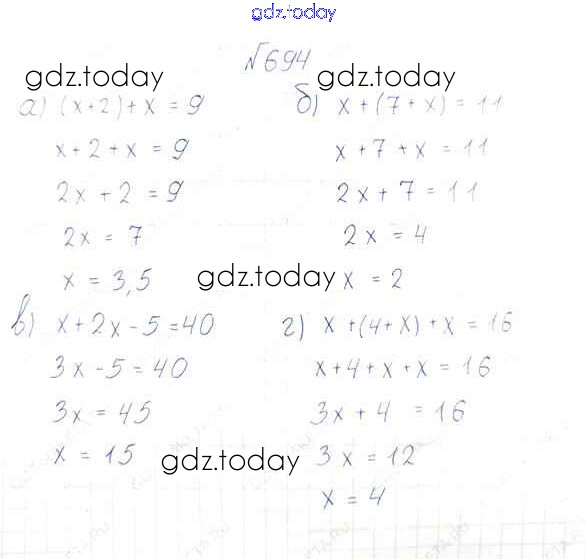 gdz.today
№694
gdz.today gdz.today
а) (x+2)+x = 9
x+2+x = 9
2x+2 = 9
2x = 7
x = 3,5
б) x+(7+x) = 11
x+7+x = 11
2x+7 = 11
2x = 4
gdz.today x = 2
в) x+2x-5=40
3x-5=40
3x = 45
x = 15
г) x+(4+x)+x = 16
x+4+x+x = 16
3x+4 = 16
gdz.today 3x = 12
x = 4